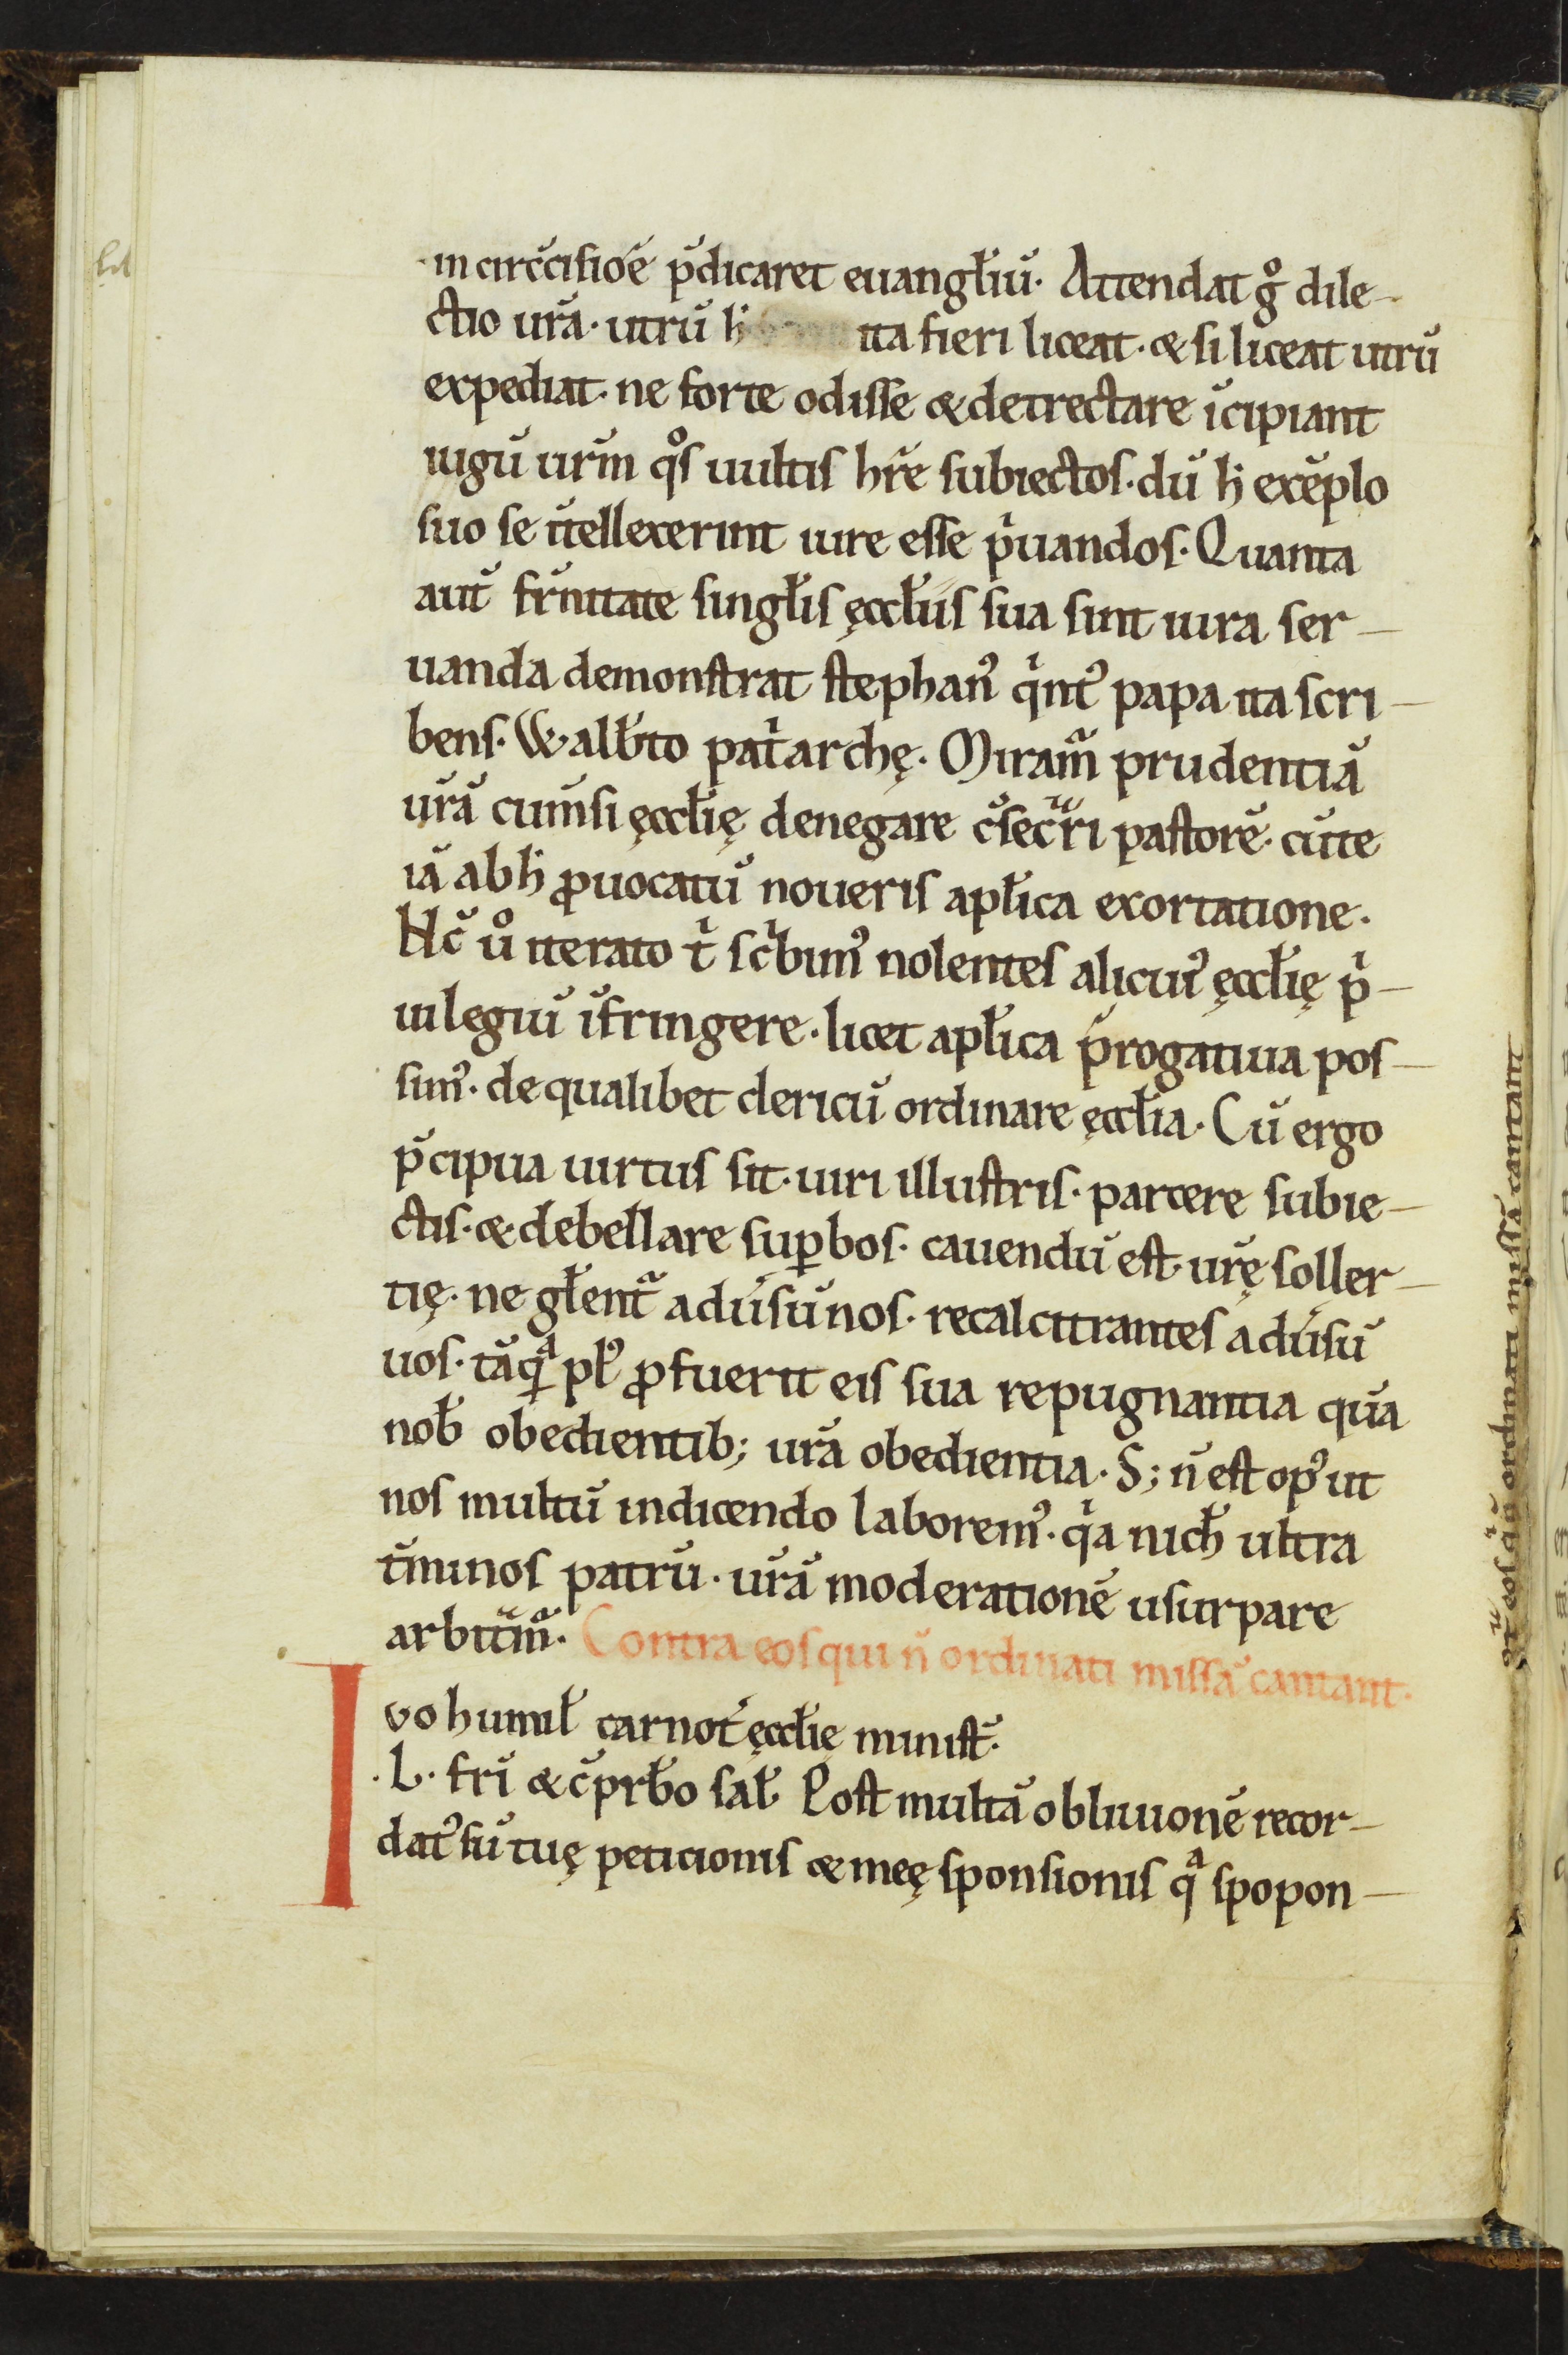 in circūcisiōe p̄dicaret euangl̄iū. Attendat gͦ dile-
ctio ur̄a. utrū h̄ ita fieri liceat. & si liceat utrū
expediat. ne forte odisse & detrectare īcipiant
iugū ur̄m qͦs uultis hr̄e subiectos. dū h̄ exēplo
suo se ītellexerint iure esse pͥuandos. Quanta
aut̄ fr̄mitate singl̄is ęccl̄iis sua sint iura ser-
uanda demonstrat stephanꝰ qͥntꝰ papa ita scri-
bens. Walb̄to patͥarchę. Miramᷓ prudentiā
ur̄ā cum̄si ęccl̄ię denegare c̄secᷓri pastorē. cū te
iā ab h̄ ꝓuocatū noueris apl̄ica exortatione.
Hc̄ uͦ iterato tͥ scͥbimꝰ nolentes alicuiꝰ ęccl̄ię pͥ-
uilegiū īfringere. licet apl̄ica p̄rogatiua pos-
simꝰ. de qualibet clericū ordinare ęccl̄ia. Cū ergo
p̄cipua uirtus sit. uiri illustris. parcere subie-
ctis. & debellare suꝑbos. cauendū est ur̄ę soller-
tię. ne gl̄entᷓ adūsū nos. recalcitrantes adūsū
uos. tāqͣ pl̄ꝰ ꝓfuerit eis sua repugnantia quā
nob̄ obedientib; ur̄a obedientia. S; n̄ est opꝰ ut
nos multū in dicendo laboremꝰ. qͥa nich̄ ultra
t̄minos patrū. ur̄ā moderationē usurpare
arbitᷓmᷓ. Contra eos qui n̄ ordinati missā cantant.
Ivo humil̄ carnot̄ ęccl̄ię minist̄.
.L. fr̄i & c̄prb̄o sal̄. Post multā obliuionē recor-
datꝰ sū tuę peticionis & meę sponsionis qͣ spopon-
9tᷓ eos qͥ n̄ ordinati missā cantant